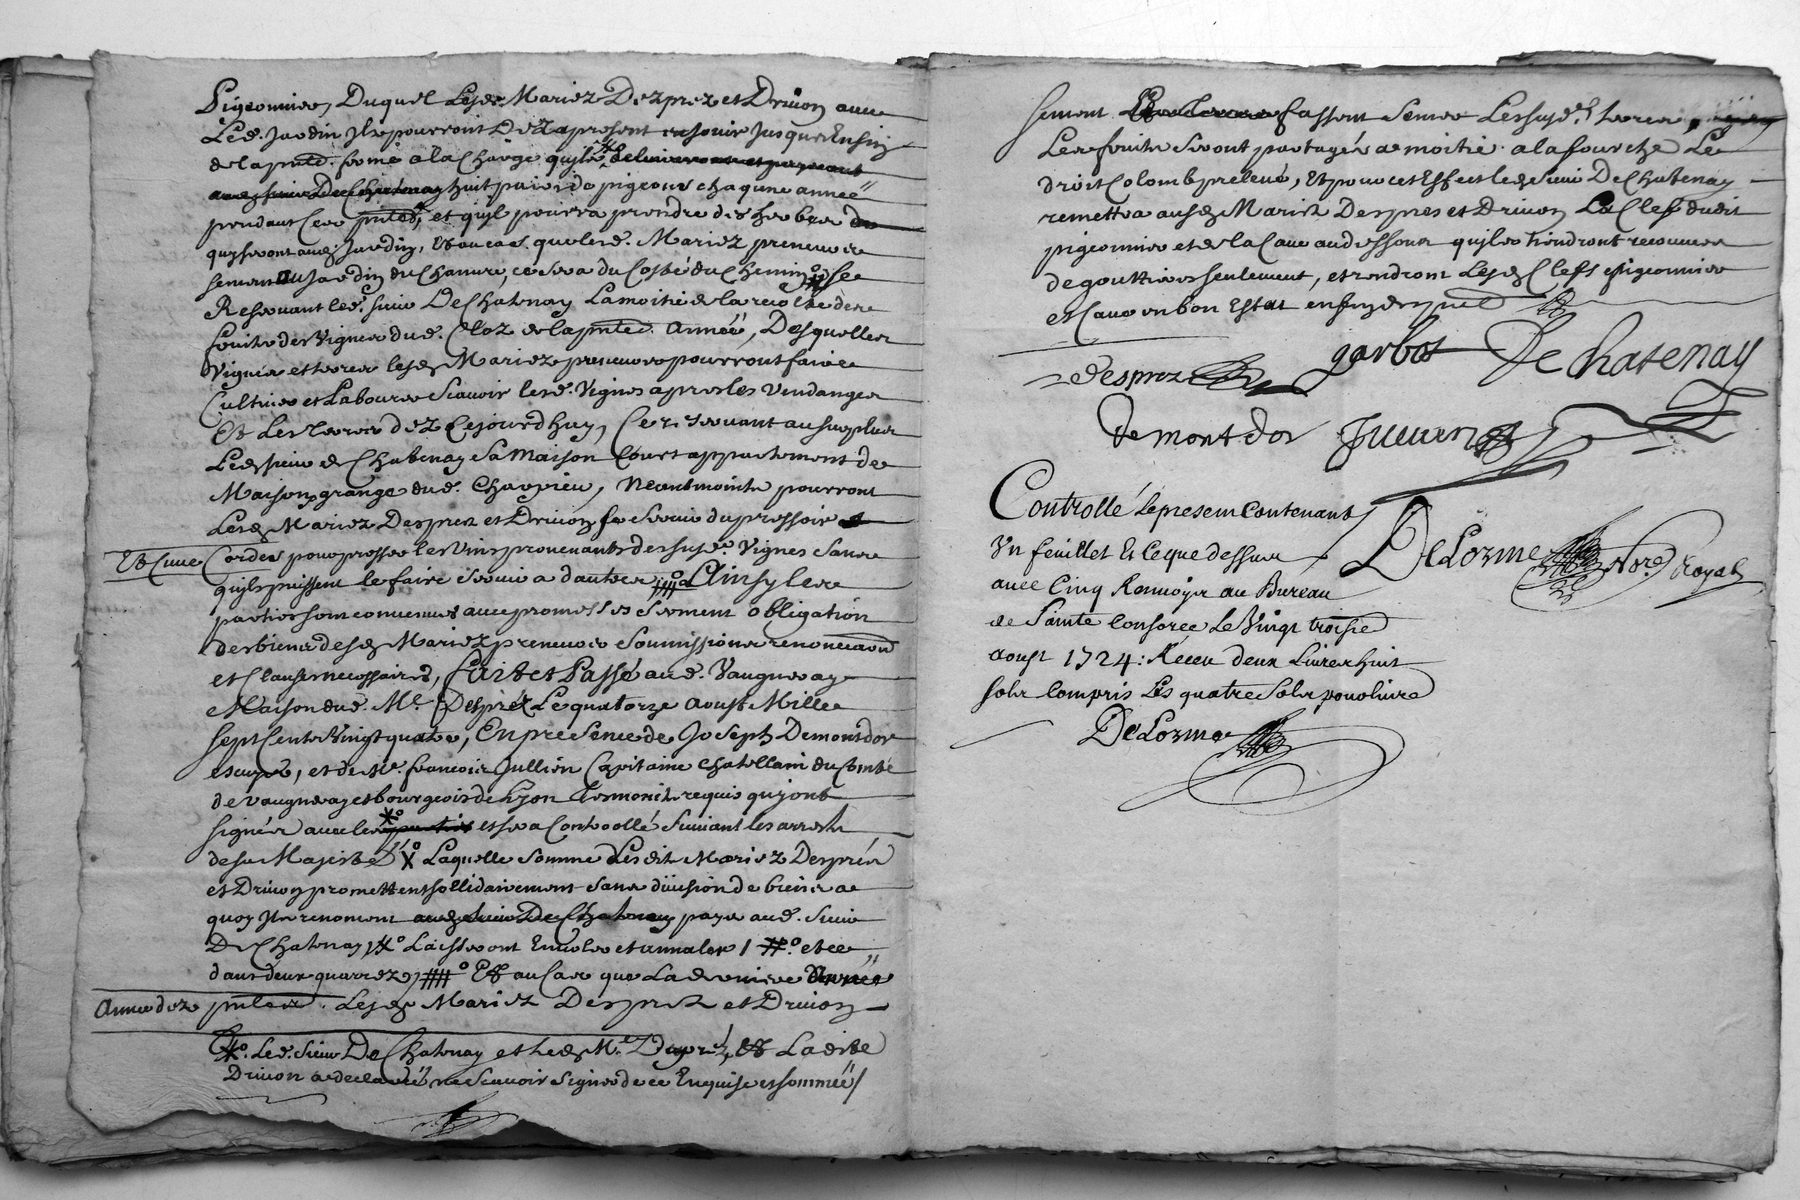 Pigeonnier, Duquel lesds Mariez Desprez et Drivon avec
Led. Jardin Ilz pourront Dez apresent en jouir Jusques Enfin
de la pnte. ferme a la Charge quilz delivreront et payeront
audsieur De Chatenay huit paires de pigeons chaqune année
pendant Ces pntes, et quil pourra prendre des herbes
quy seront aud Jardin, Et au cas que lesd. Mariez preneurs
sement au Jardin du Chanvre, ce sera du Costé du Chemin, se
Reservant led. sieur De Chatenay La moitié de la recolte des
fruits des Vignes dud. Cloz de la pnte. Année, Desquelles
Vignes et terres lesds Mariez preneurs pourront faire
Cultiver et Labourer Scavoir lesd. Vignes apres les Vendanges
Et Les Terres dez Cejourdhuy, Ce reservant au surplus
Led sieur de Chatenay Sa Maison Court appartement de
Maison, grange dud. Charpieu, Neantmoints pourront
Lesds Mariez Desprez et Drivon se Servir du pressoir et
Et Cuve
Cordes pour presser les Vins provenants des susd. Vignes Sans
quilz puissent le faire Servir a dautres Ainsy les
parties sont convenues avec promesses Serment obligation
des biens desds Mariez preneurs Soumissions renonciaons
et Clauses necessaires, Fait et Passé aud. Vaugneray
Maison dud. Mr. Desprez Le quatorze Aoust Mille
sept Cents Vingt quatre, En presence de Joseph Demontdor
escuyer, et de Me. francois Jullien Capitaine Chatellain du Comté
de Vaugneray et bourgeois de Lyon Tesmoints requis quy ont
signés avec les parties et sera Controollé Suivant les arrests
de sa Majesté X Laquelle Somme Lesdits Mariez Després
et Drivon promettent sollidairement Sans division de biens a
quoy Ilz renoncent aud sieur De Chatenay payer aud. Sieur
De Chatenay
dans deux quarrez, Et au Cas que La derniere Année
Année dez
pntes. Lesds Mariez Desprez et Drivon
Led. Sieur De Chatenay et Led Mr. Desprez, Et Ladite
Drivon a declaré ne Scavoir Signer de ce Enquise et sommée
sement fassent Semer Les susd. terres
Les fruits Seront partagés a moitié a la fourche Le
droit Colomb prelevé, Et pour cet Effect led sieur De Chatenay
remettra ausds Mariez Desprez et Drivon La Clef dudit
pigeonnier et de la Cave au dessous quilz tiendront recouvers
de gouttieres seulement, et rendront Lesds Clefs pigeonnier
et Cave en bon Estat enfin
desprez garbot De Chatenay
de montdor Jullien
Controllé le present Contenant
Un feuillet Et Ce que dessus
avec Cinq Renvoys au Bureau
de Sainte Consorce Le Vingt troisie
aoust 1724: Receu deux Livres huit
sols Compris Les quatre Sols pour livre
DeLorme Nore. Royal
DeLorme